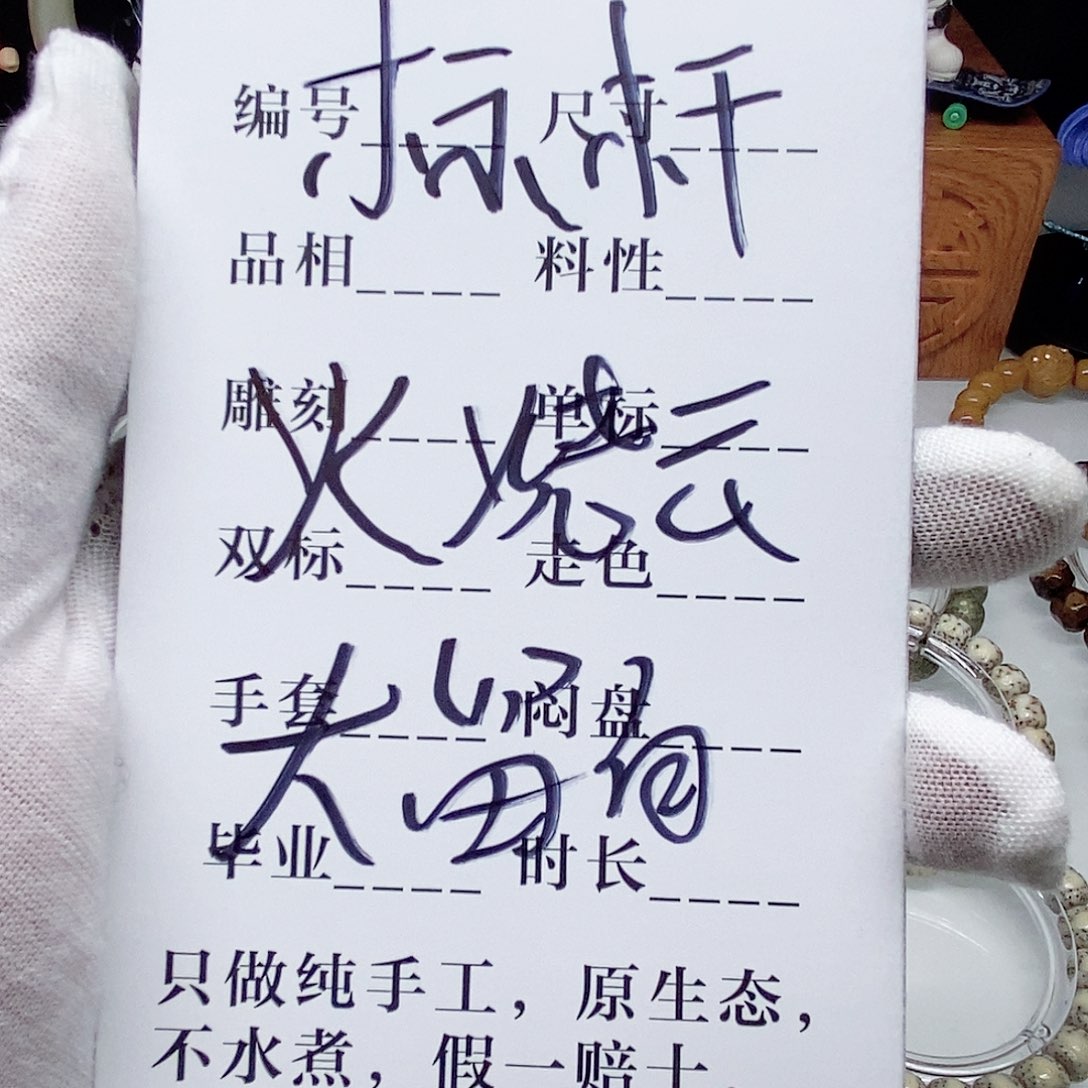 编号____ 尺寸____
标杆
品相____ 料性____
雕刻____ 单标____
火烧云
双标____ 走色____
手套____ 闷盘____
大留
毕业____ 时长____
只做纯手工，原生态，
不水煮，假一赔十，